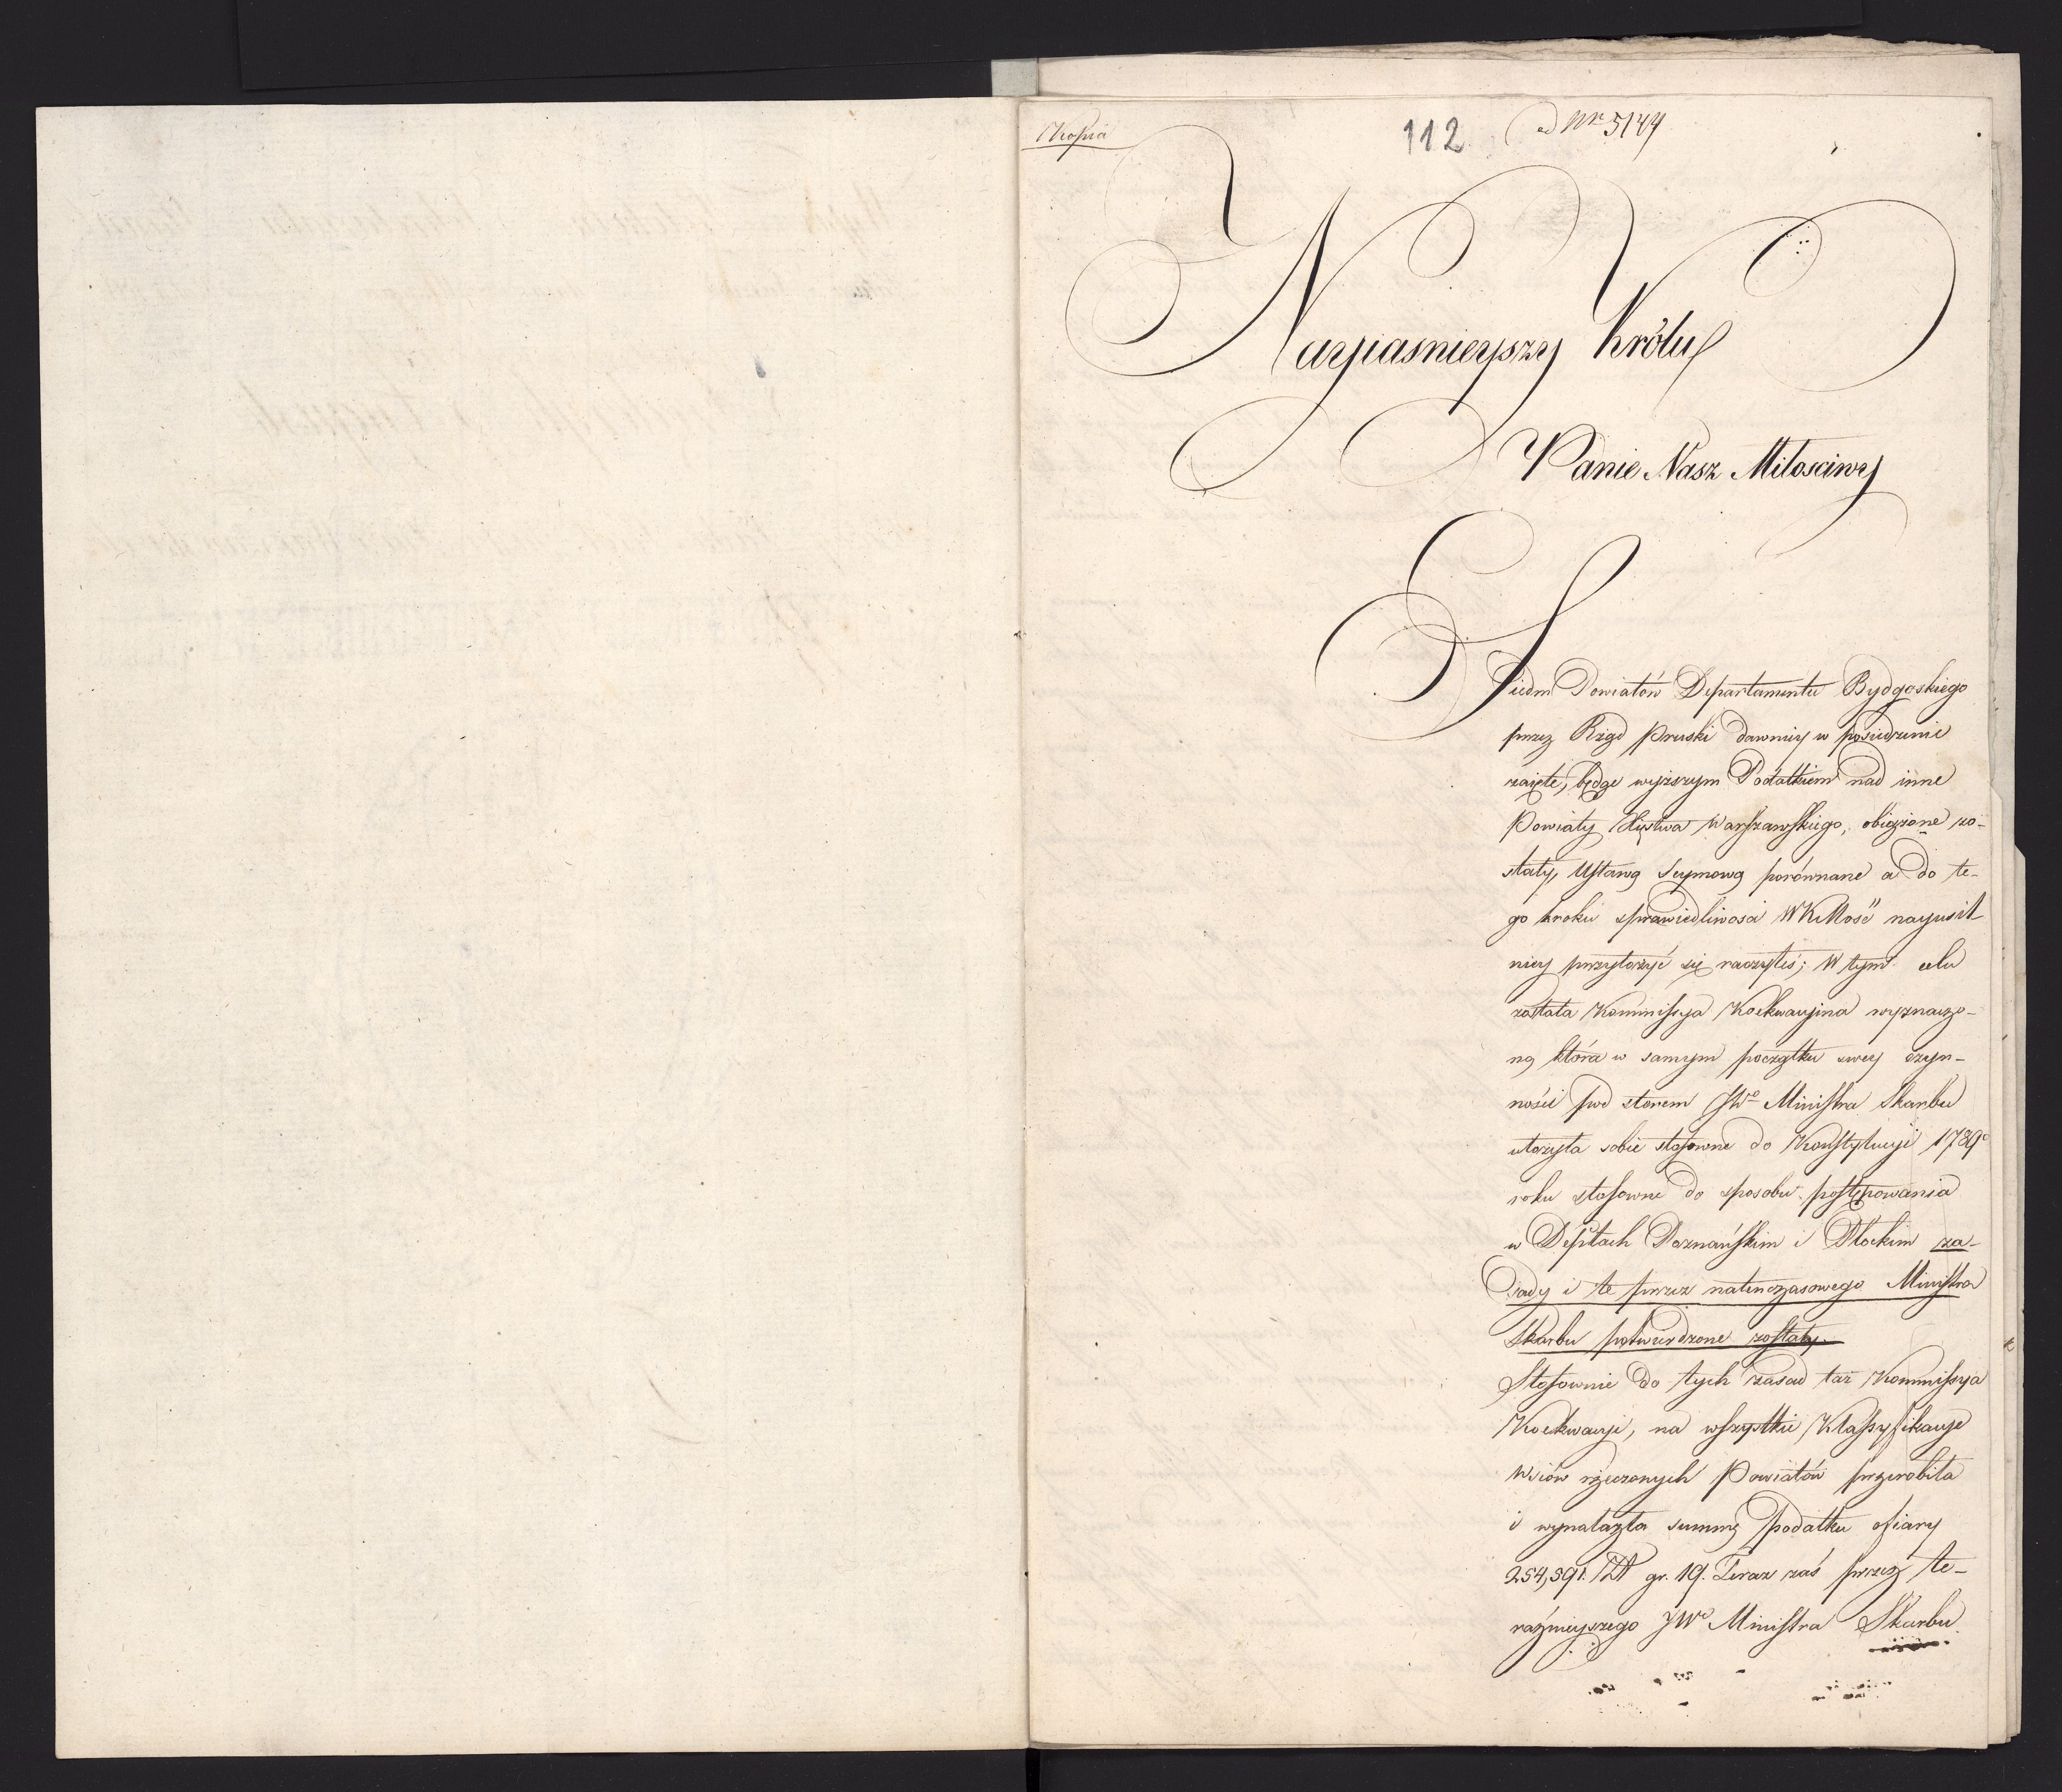 Kopia
112
ad Nr 5144
Nayiasnieyszy Królu
Panie Nasz Miłosciwy
Siedm Powiatów Departamentu Bydgoskiego
przez Rząd Pruski dawniey w posiedzenie
zaięte, będąc wyższym Podatkiem nad inne
Powiaty Xięstwa Warszawskiego, obiążone zo-
stały, Ustawą Seymową porównane a do te-
go kroku sprawiedliwości WKMość nayusil-
niey przyłożyć się raczyłeś; W tym celu
została Kommissya Koekwacyina wyznaczo-
ną która w samym początku swey czyn-
ności pod sterem JWo Ministra Skarbu
ułożyła sobie stosowne do Konstytucyi 1789o
roku stosowne do sposobu postępowania
w Deptach Poznańskim i Płockim za-
sady i te przez natenczasowego Ministra
Skarbu potwierdzone zostały.
Stosownie do tych zasad taż Kommissya
Koekwacyi, na wszystkie Klassyfikacye
Wsiów rzeczonych Powiatów przerobiła
i wynalazła summę podatku ofiary
254,391. Zł gr. 19. Teraz zaś przez te-
raźnieyszego JWo Ministra Skarbu